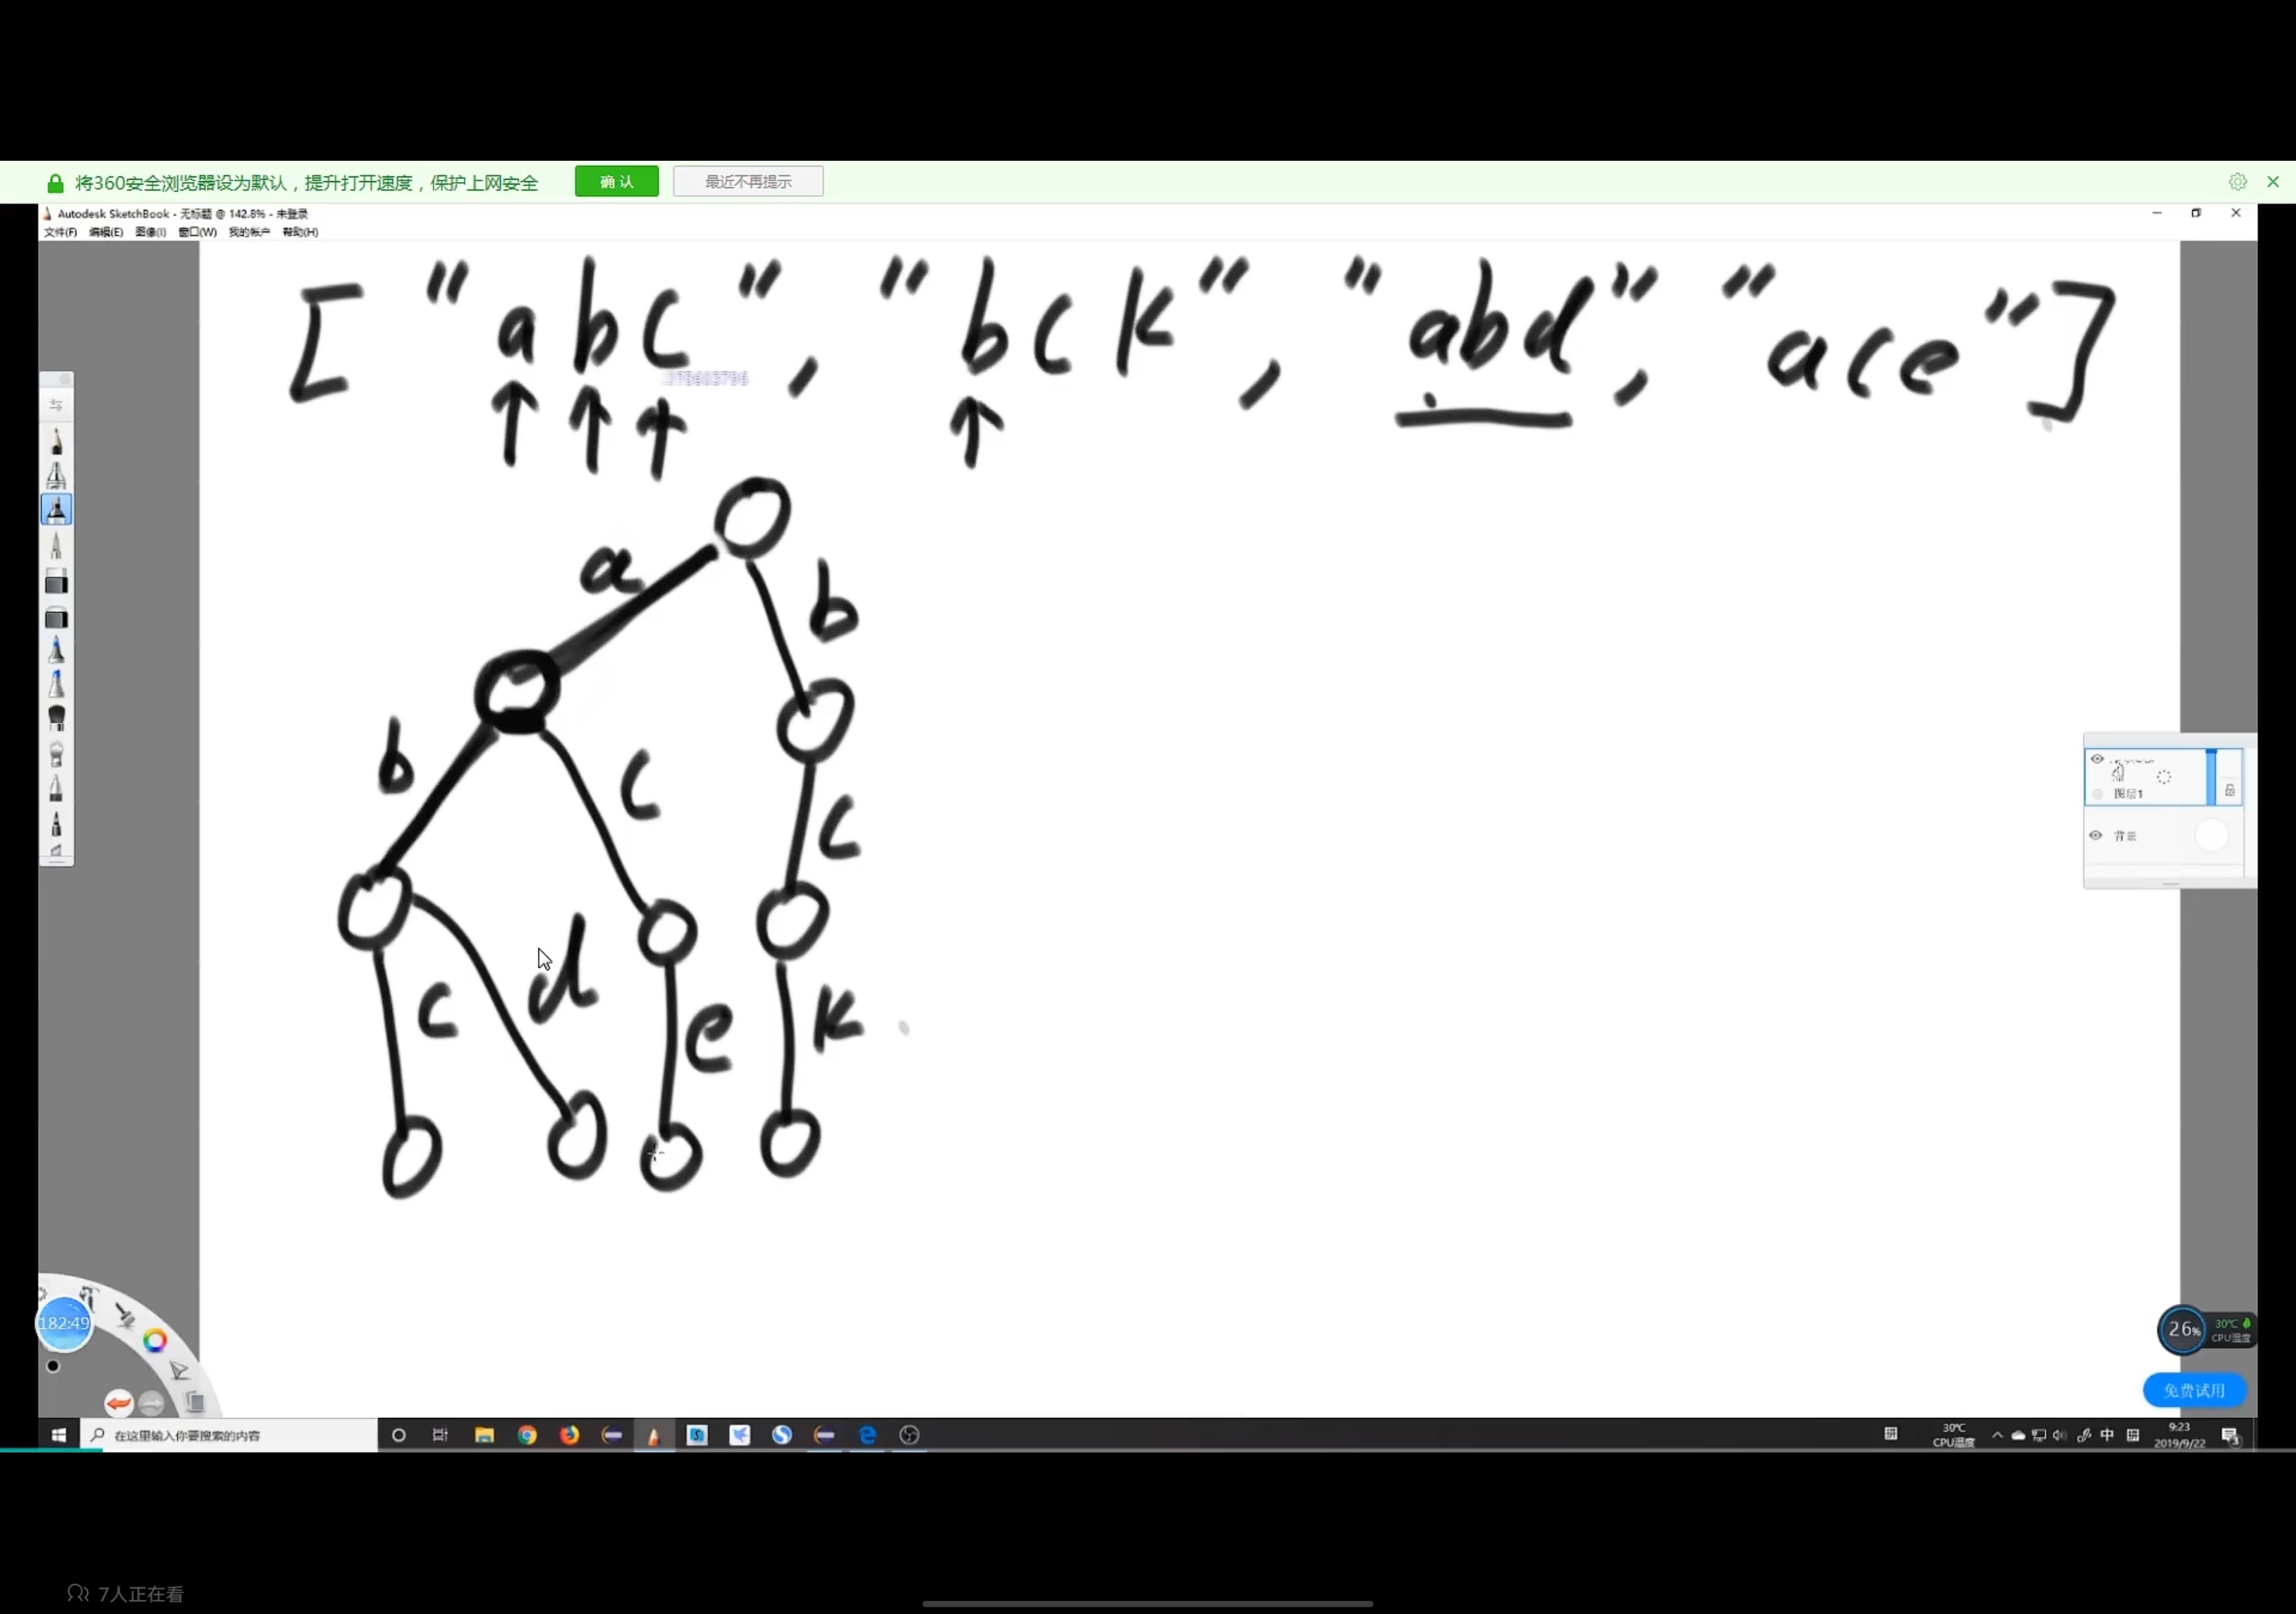 将360安全浏览器设为默认，提升打开速度，保护上网安全 确认 最近不再提示
Autodesk SketchBook - 无标题 @ 142.8% - 未登录
文件(F) 编辑(E) 图像(I) 窗口(W) 我的帐户 帮助(H)
["abc", "bck", "abd", "ace"]
a
b
b
c
c
c
d
e
k
图层1
背景
182:49
26%
30℃
CPU温度
免费试用
在这里输入你要搜索的内容
30℃
CPU温度
中
9:23
2019/9/22
3
7人正在看